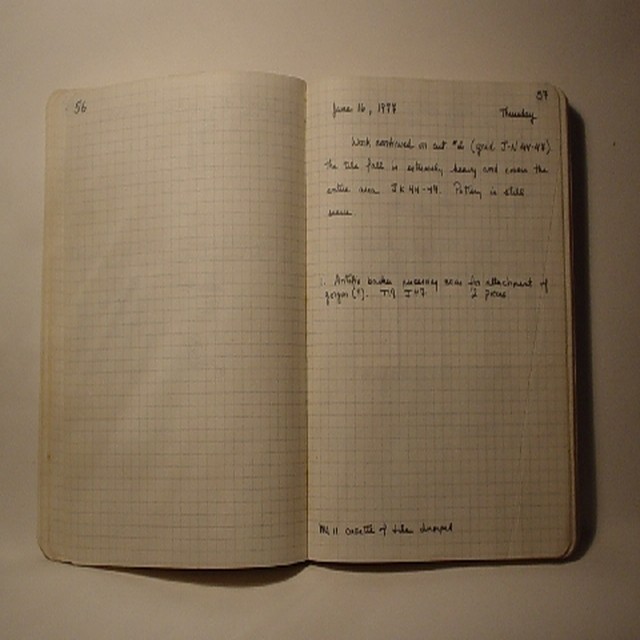 56
57
June 16, 1977 Thursday
Work continued on cut #2 (grid J-N 44-48)
the tile fall is extremely heavy and covers the
entire area J.K 44-49. Pottery is still
scarce.
1. Antefix backer
gorgon (?). J47 2 pieces
11 cassette of tile dumped